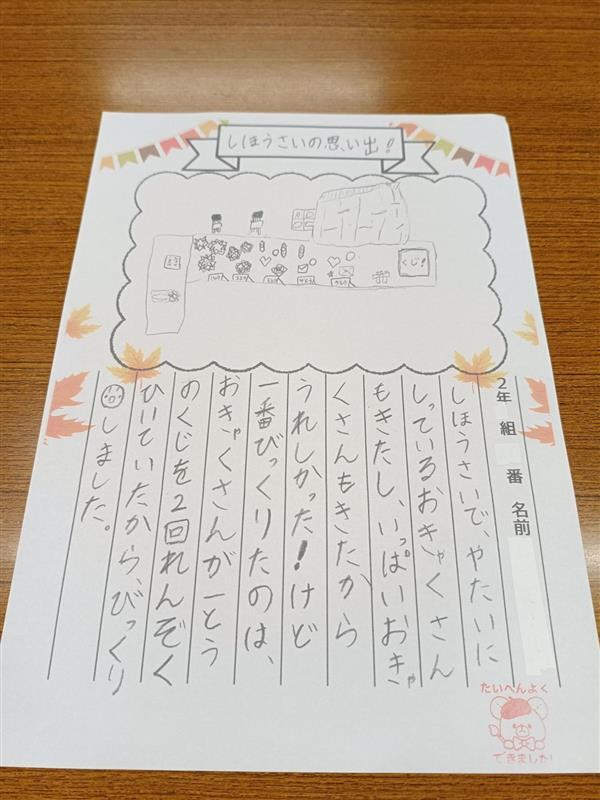 しほうさいの思い出!
くじ!
2年 組 番 名前
しほうさいで、やたいに
しっているおきゃくさん
もきたし、いっぱいおきゃ
くさんもきたから
うれしかった!けど
一番びっくりたのは、
おきゃくさんが一とう
のくじを2回れんぞく
ひいていたから、びっくり
しました。
たいへんよく
できました!